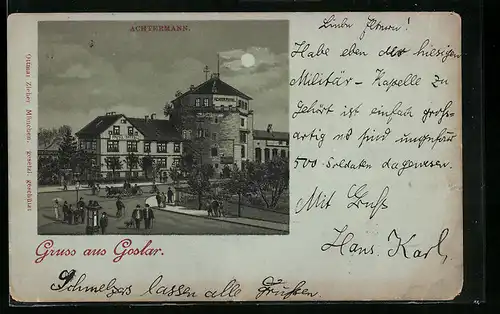 ACHTERMANN.
Ottmar Zieher, München gesetzl. geschützt
Liebe Eltern!
Habe eben der hiesigen
Militär-Kapelle zu
gehört ist einfach groß-
artig es sind ungefähr
500 Soldaten dagewesen.
Mit Gruß
Hans Karl,
Gruss aus Goslar.
Schmelzers lassen alle Grüßen.